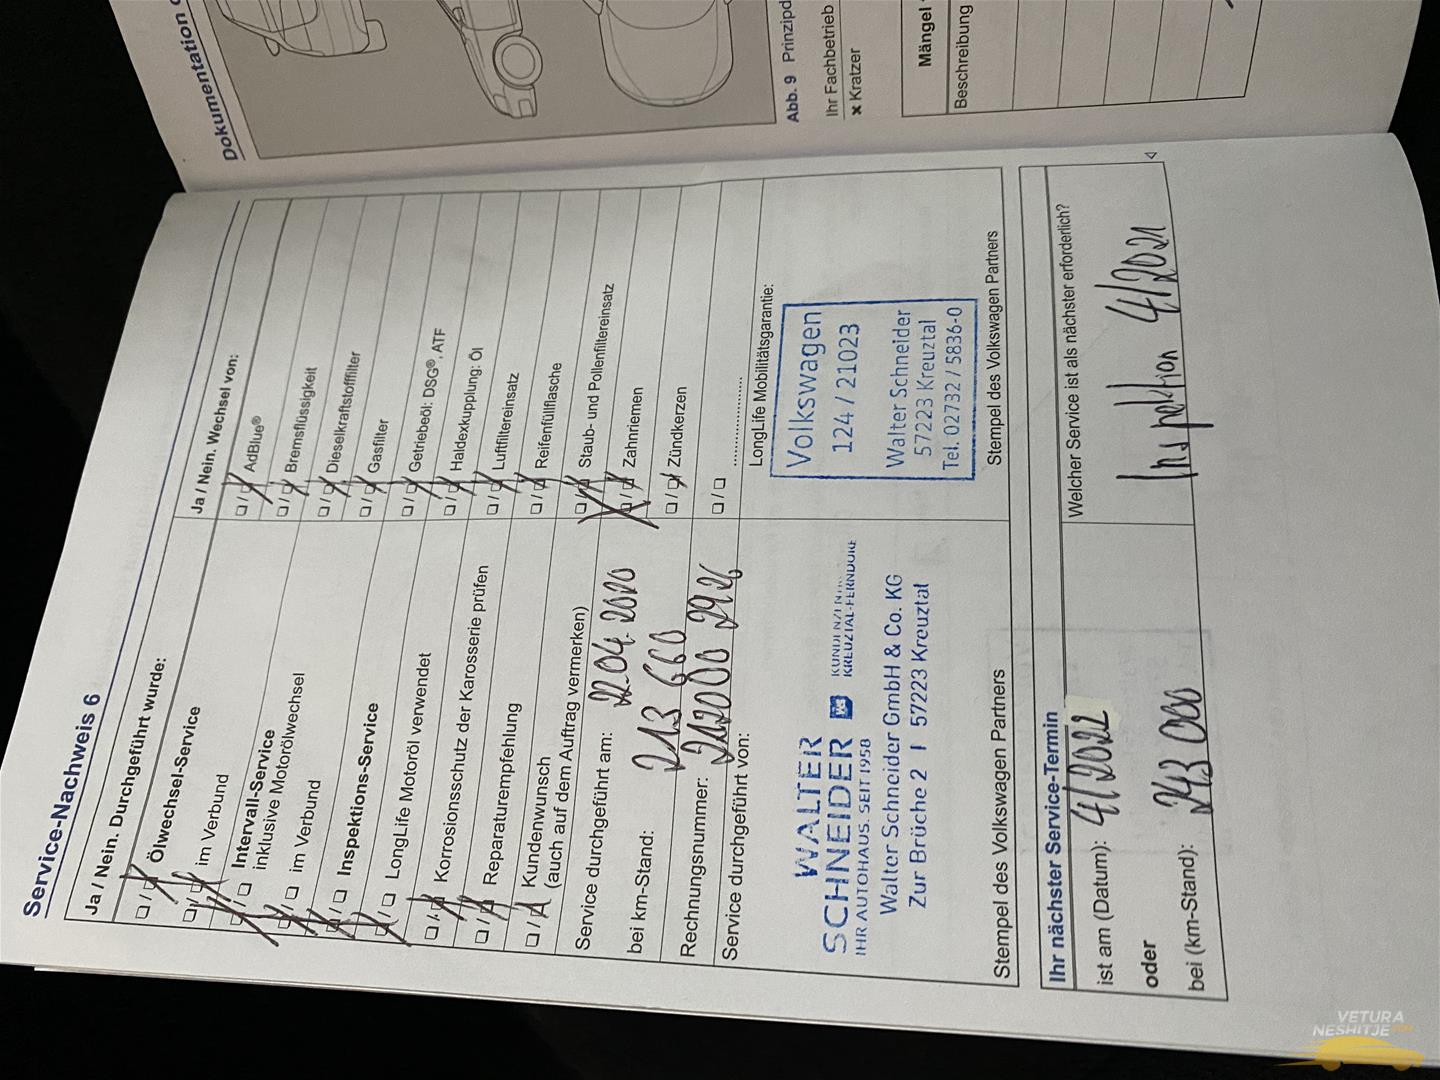 Service-Nachweis 6
Ja / Nein. Durchgeführt wurde:
Ölwechsel-Service
im Verbund
Intervall-Service
inklusive Motorölwechsel
im Verbund
Inspektions-Service
LongLife Motoröl verwendet
Korrosionsschutz der Karosserie prüfen
Reparaturempfehlung
Kundenwunsch
(auch auf dem Auftrag vermerken)
Service durchgeführt am: 22.04.2020
bei km-Stand: 213 660
Rechnungsnummer:
Service durchgeführt von:
WALTER
SCHNEIDER
IHR AUTOHAUS. SEIT 1958
KREUZTAL-FERNDORF
Walter Schneider GmbH & Co. KG
Zur Brüche 2 I 57223 Kreuztal
Stempel des Volkswagen Partners
Ja / Nein. Wechsel von:
AdBlue®
Bremsflüssigkeit
Dieselkraftstofffilter
Gasfilter
Getriebeöl: DSG®, ATF
Haldexkupplung: Öl
Luftfiltereinsatz
Reifenfüllflasche
Staub- und Pollenfiltereinsatz
Zahnriemen
Zündkerzen
LongLife Mobilitätsgarantie:
Volkswagen
124 / 21023
Walter Schneider
57223 Kreuztal
Tel. 02732 / 5836-0
Stempel des Volkswagen Partners
Ihr nächster Service-Termin
ist am (Datum): 4/2022
oder
bei (km-Stand): 243 000
Welcher Service ist als nächster erforderlich?
Inspektion 4/2021
Dokumentation
Abb. 9 Prinzipd
Ihr Fachbetrieb
× Kratzer
Mängel
Beschreibung
VETURA
NESHITJE